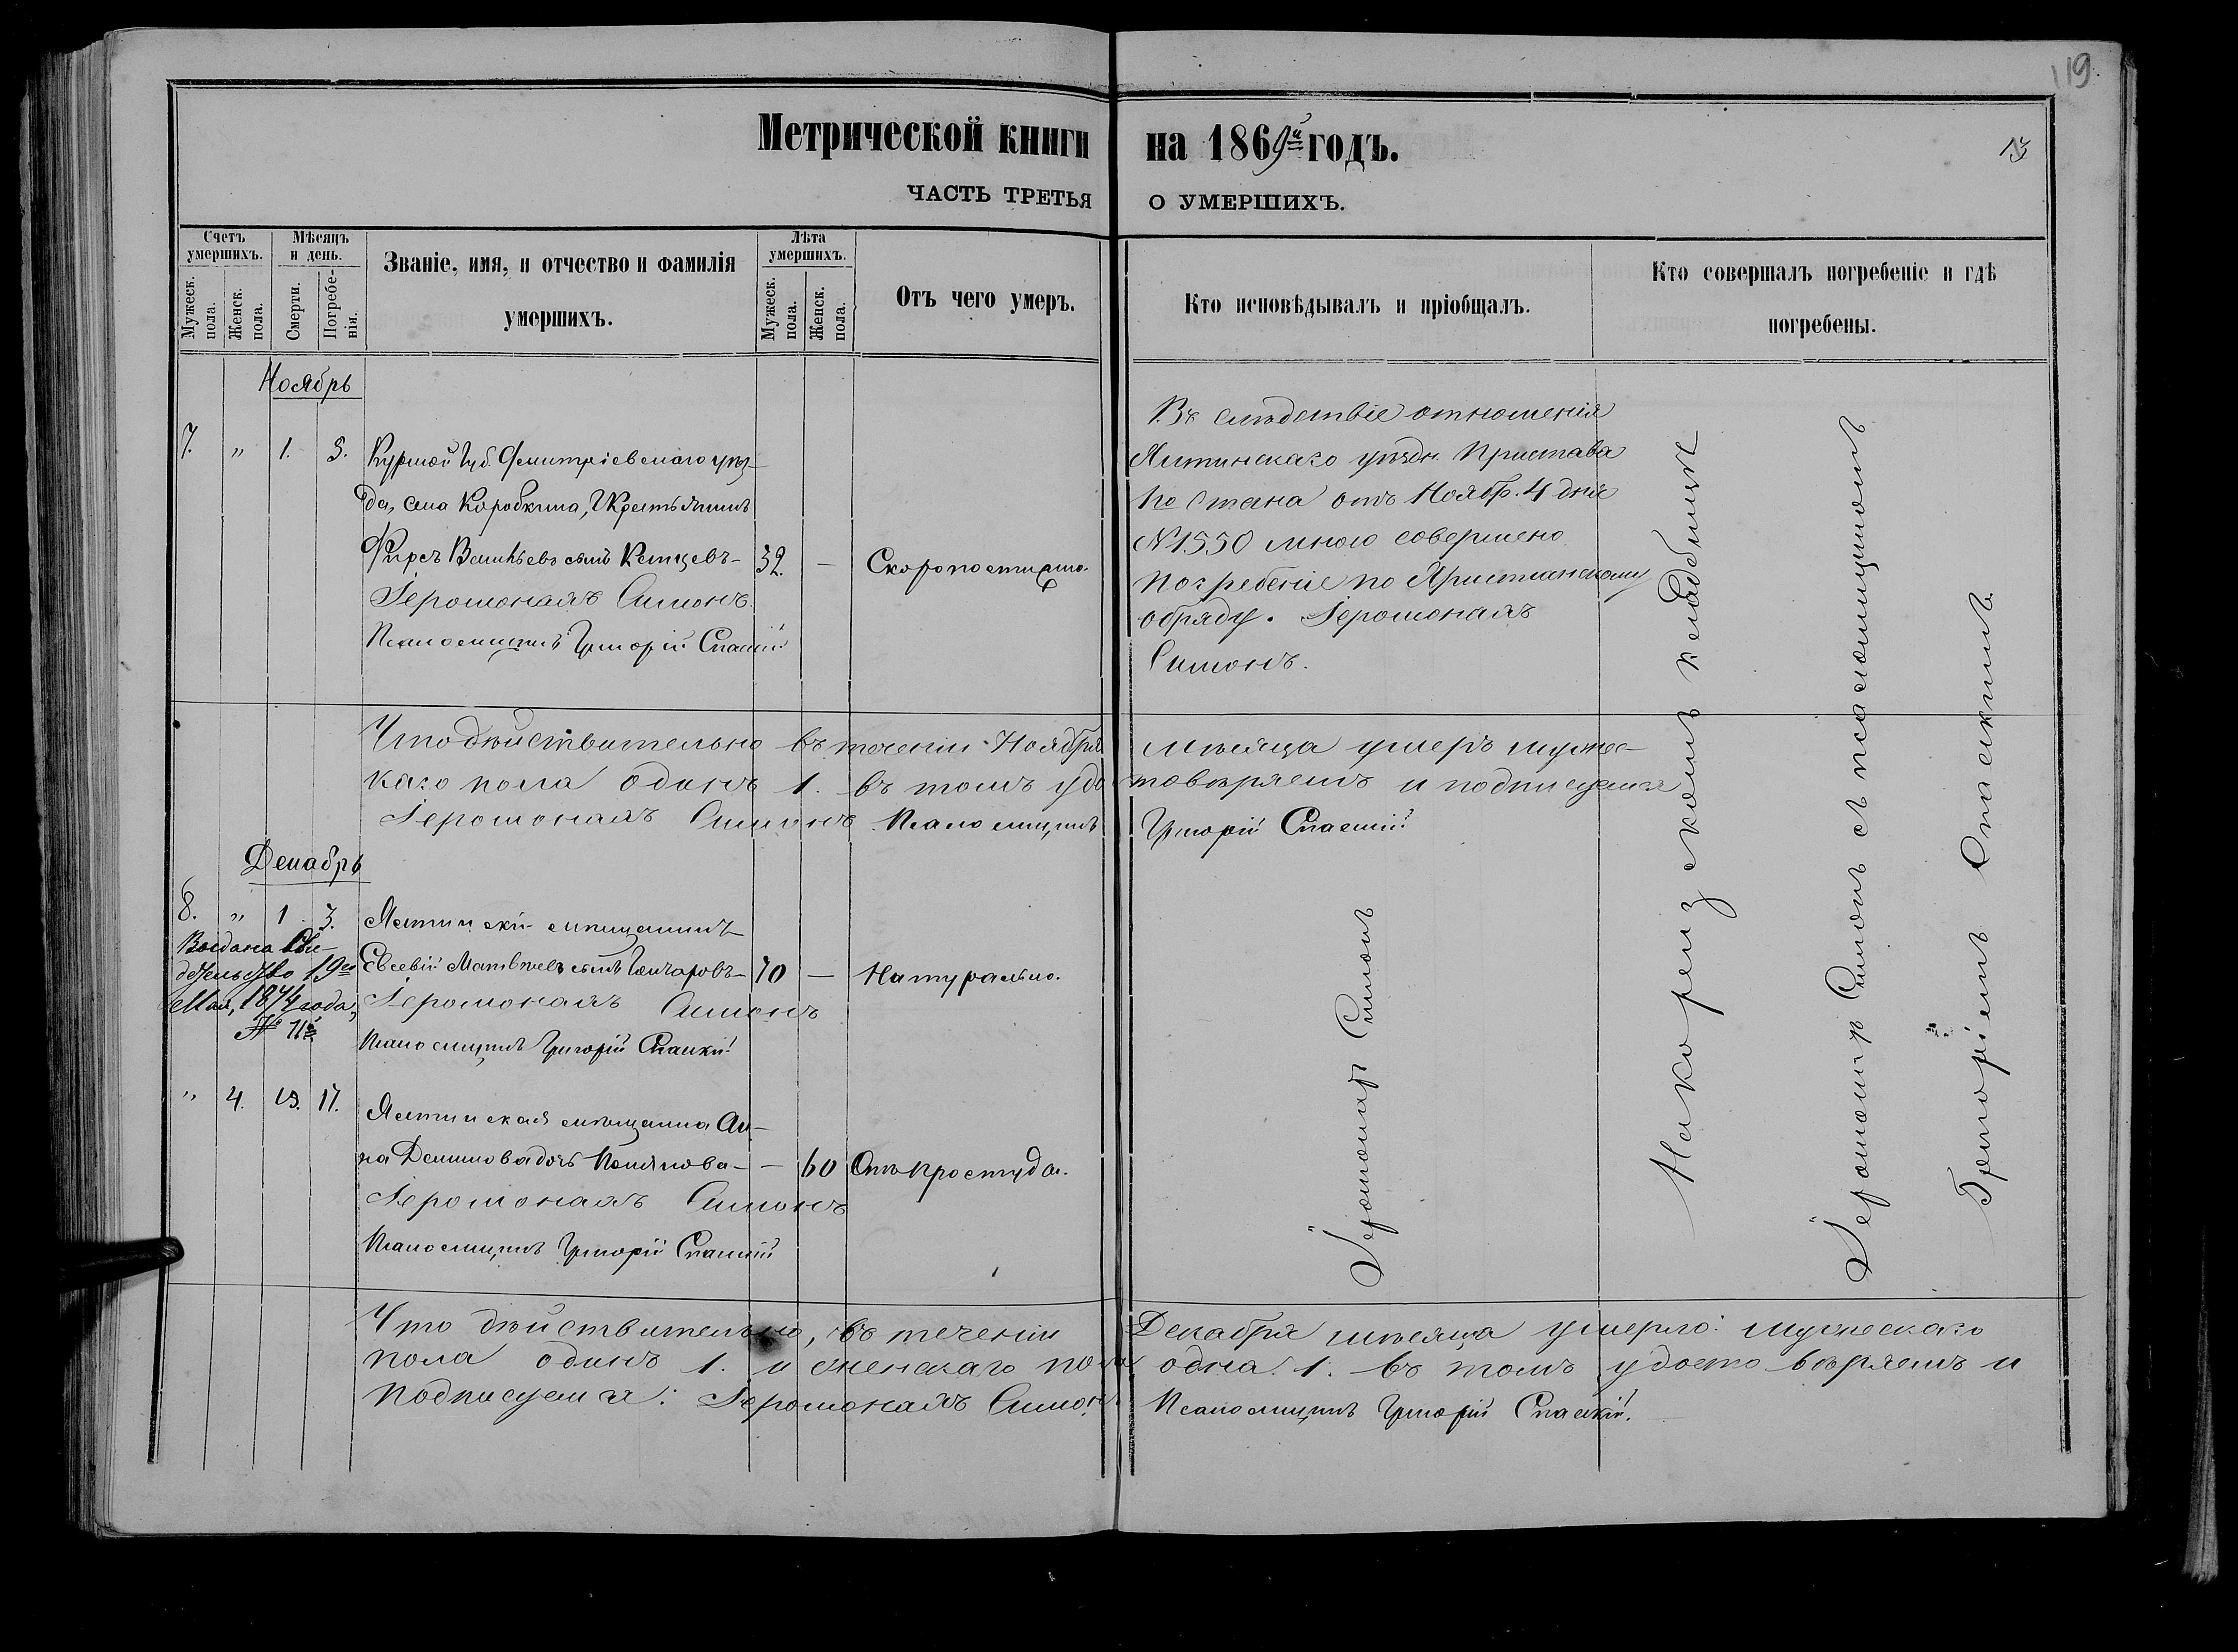 119.
Метрической книги на 1869й годъ.
13
ЧАСТЬ ТРЕТЬЯ О УМЕРШИХЪ.
Счетъ умершихъ.
Мужеск. пола.
Женск. пола.
Мѣсяцъ и день.
Смерти.
Погребе-нія.
Званіе, имя, и отчество и фамилія
умершихъ.
Лѣта умершихъ.
Мужеск. пола.
Женск. пола.
Отъ чего умеръ.
Кто исповѣдывалъ и пріобщалъ.
Кто совершалъ погребеніе и гдѣ
погребены.
Ноябрь
7. " 1. 5. Курской Губ. Дмитріевскаго уѣз-
да, села Коробкина, Крестьянинъ
Фирсъ Васильевъ сынъ 32. — Скоропостижно.
Іеромонахъ Симонъ.
Псаломщикъ Григорій Спаскій
Въ слѣдствіе отношенія
Ялтинскаго уѣздн. Пристава
1го Стана отъ Ноябр. 4 дня
№1550 мною совершено
погребеніе по Христианскому
обряду. Іеромонахъ
Симонъ.
Что дѣйствительно въ теченіи Ноября мѣсяца умеръ мужес-
каго пола одинъ 1. въ томъ удостовѣряемъ и подписуемся
Іеромонахъ Симонъ Псаломщикъ Григорій Спаскій
Декабрь
8. " 1. 3. Ялтинскій мѣщанинъ
Евсевій Матвѣевъ сынъ Гончаровъ— 70 — Натурально.
Іеромонахъ Симонъ
Псаломщикъ Григорій Спаскій
Выдано Сви-
детельство 19го
Мая, 1874 года,
№ 11й
" 4. 15. 17. Ялтинская мѣщанка Ан-
на Демидова дочь — 60 Отъ простуды.
Іеромонахъ Симонъ
Псаломщикъ Григорій Спаскій
Іеромонахъ Симонъ
На кореизскомъ кладбищѣ
Іеромонахъ Симонъ съ псаломщикомъ
Григоріемъ Спаскимъ
Что дѣйствительно, въ теченіи Декабря мѣсяца умерло: мужескаго
пола одинъ 1. и женскаго пола одна 1. въ томъ удостовѣряемъ и
подписуемся: Іеромонахъ Симонъ. Псаломщикъ Григорій Спаскій.